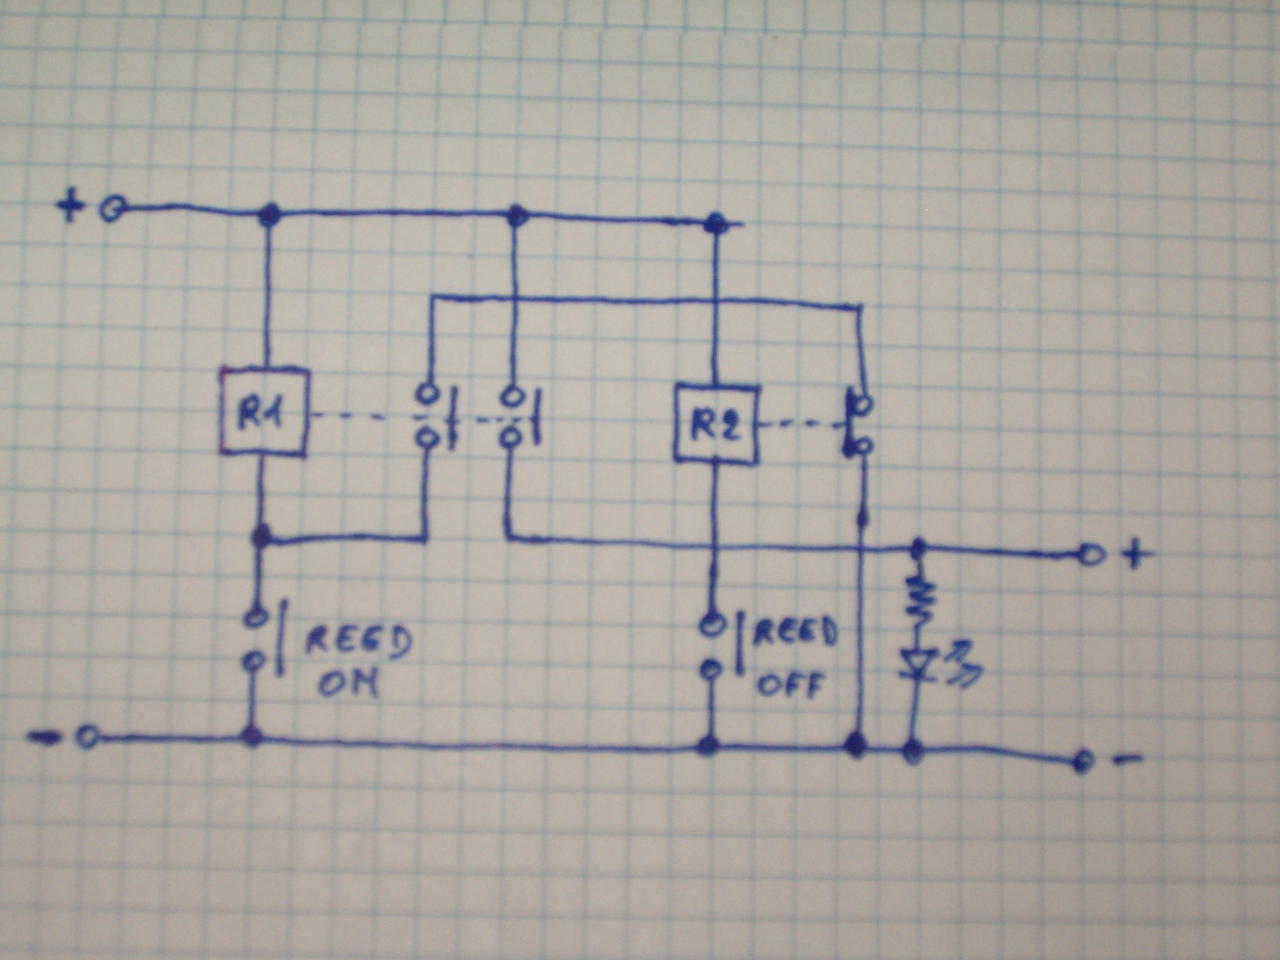 +
R1
R2
+
REED
ON
REED
OFF
-
-